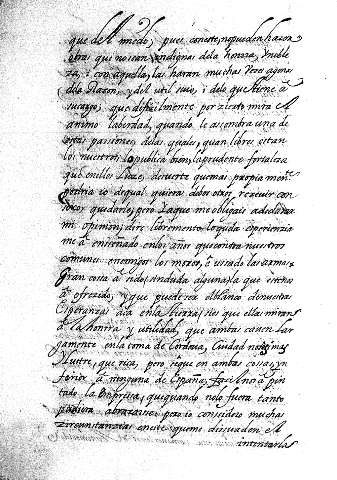 que del miedo; pues con este, no pueden hazer
otra que no sean indignas de la honrra, i noble
za, i con aquella, las haran muchas Vezes agenas
de la Razon, i del util suio, i de lo que tiene a
su cargo; que dificilmente por zierto mira el
animo la berdad, quando le assombra una de
estas passiones, de las quales, quan libres estan
los nuestros lo publica bien, la prudente fortaleza
que en ellos
podria io de qual quiera de los otros, rezivir con
sejos que darles; pero Ya que me obligais a declarar
mi opinion; dire libremente lo que la esperienzia
me a enseñado en los años que contra nuestros
comunes enemigos los moros, e usado las armas
Gran cossa a sido, sin duda alguna, la que se nos
a ofrezido, y que puede ser el blanco de nuestras
Esperanzas aca en la tierra; si es que ellas miran
a la honrra y utilidad, que ambas caven lar
gamente en la toma de Cordova, Ciudad no menos
Ilustre, que rica, pero se que en ambas cossas, in
ferior a ninguna de España, facil nos a pin
tado la Empresa, que quando no lo fuera tanto
pudiera abrazarse; pero io considero muchas
zircunstanzias en este que me disuaden el
intentarla